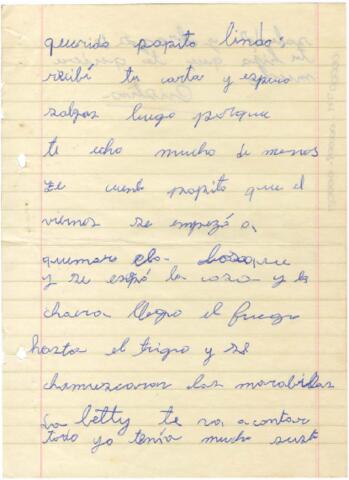 querido papito lindo:
recibi tu carta y espero
salgas luego porque
te echo mucho de menos
te cuento papito que el
viernes se empezó a
quemar el bosque
y se la casa y la
chacra llego el fuego
hasta el trigo y se
chamuscaron las
La betty te va acontar
todo yo tenia mucho sust